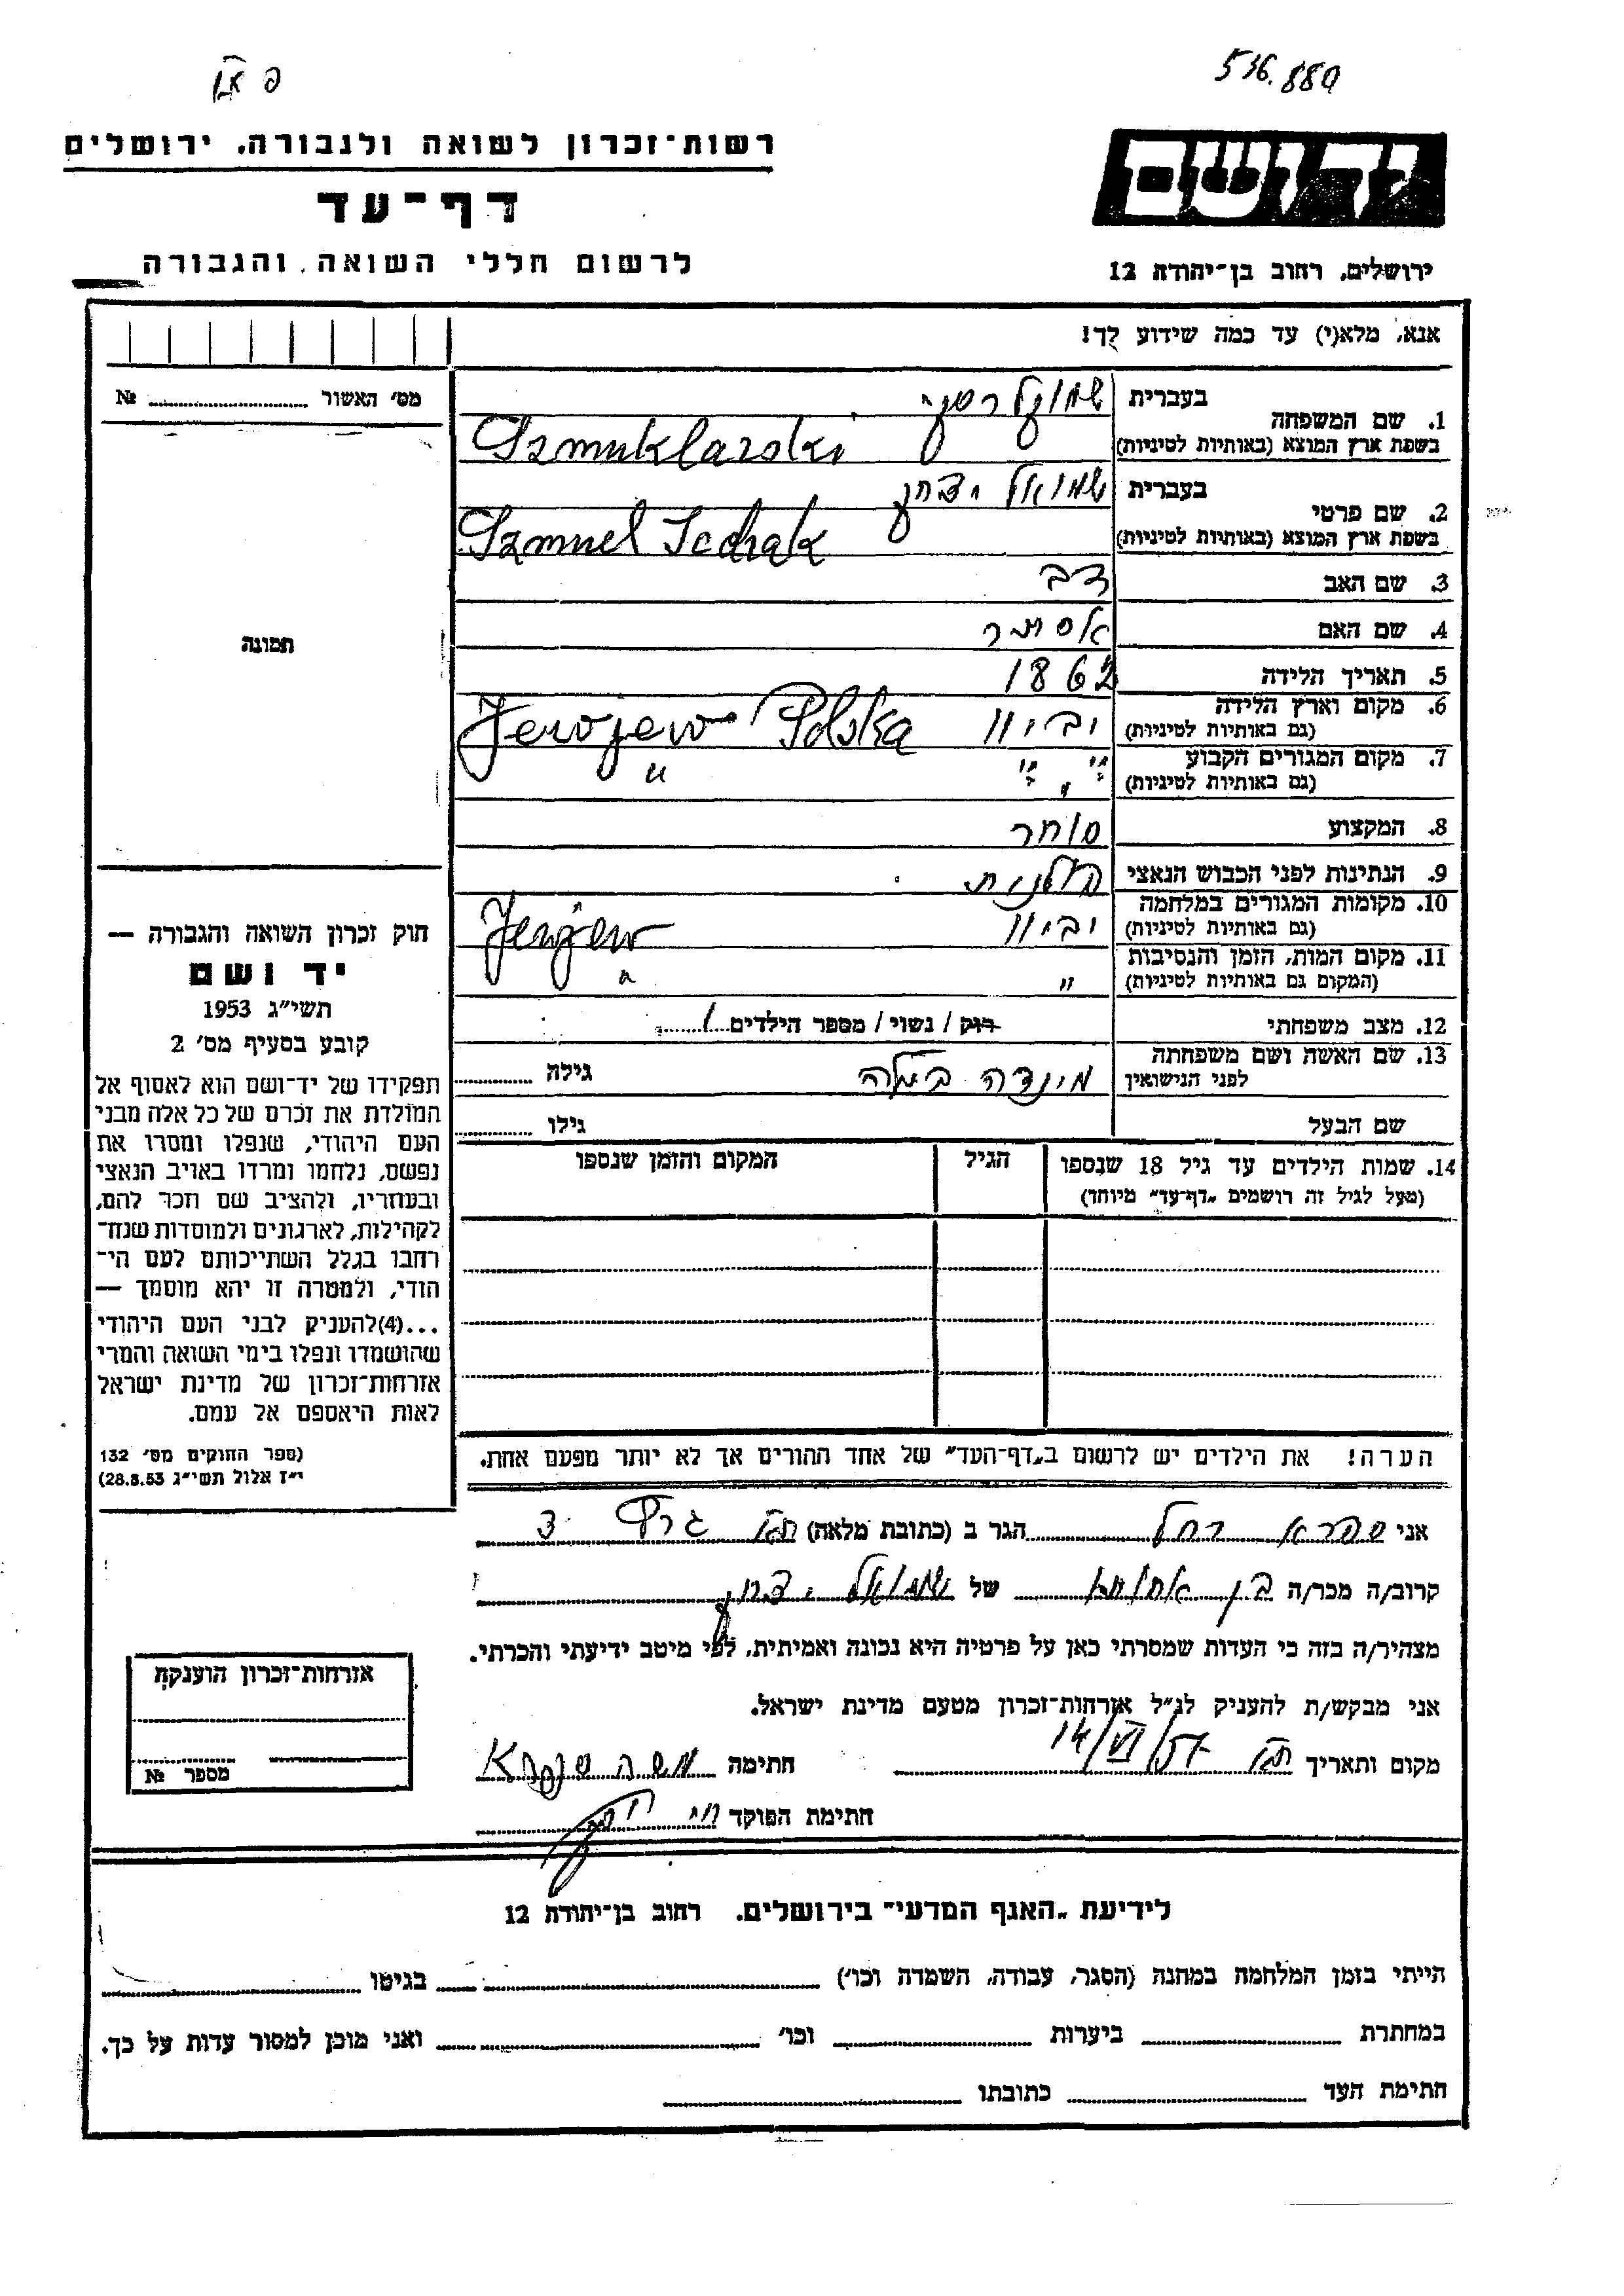 536.889
רשות־זכרון לשואה ולגבורה, ירושלים
יד ושם
דף־עד
לרשום חללי השואה והגבורה
ירושלים, רחוב בן־יהודה 12
אנא, מלא(י) עד כמה שידוע לך!
מס׳ האשור № 
1. שם המשפחה
בעברית שמוקלרסקי
בשפת ארץ המוצא (באותיות לטיניות) Szmuklarski
2. שם פרטי
בעברית שמואל יצחק
בשפת ארץ המוצא (באותיות לטיניות) Szmuel Icchak
3. שם האב דב
4. שם האם אסתר
5. תאריך הלידה 1862
6. מקום וארץ הלידה
(גם באותיות לטיניות) Polska
7. מקום המגורים הקבוע
(גם באותיות לטיניות) " "
8. המקצוע סוחר
9. הנתינות לפני הכבוש הנאצי פולנית
10. מקומות המגורים במלחמה
(גם באותיות לטיניות)
11. מקום המות, הזמן והנסיבות
(המקום גם באותיות לטיניות) "
12. מצב משפחתי רוק / נשוי / מספר הילדים 1
13. שם האשה ושם משפחתה
לפני הנישואין בילה גילה
שם הבעל גילו
14. שמות הילדים עד גיל 18 שנספו הגיל המקום והזמן שנספו
(מעל לגיל זה רושמים „דף־עד״ מיוחד)
הערה! את הילדים יש לרשום ב„דף־העד״ של אחד ההורים אך לא יותר מפעם אחת.
תמונה
חוק זכרון השואה והגבורה —
יד ושם
תשי״ג 1953
קובע בסעיף מס׳ 2
תפקידו של יד־ושם הוא לאסוף אל
המולדת את זכרם של כל אלה מבני
העם היהודי, שנפלו ומסרו את
נפשם, נלחמו ומרדו באויב הנאצי
ובעוזריו, ולהציב שם וזכר להם,
לקהילות, לארגונים ולמוסדות שנח־
רבו בגלל השתייכותם לעם הי־
הודי, ולמטרה זו יהא מוסמך —
...(4)להעניק לבני העם היהודי
שהושמדו ונפלו בימי השואה והמרי
אזרחות־זכרון של מדינת ישראל
לאות היאספם אל עמם.
(ספר החוקים מס׳ 132
י״ז אלול תשי״ג 28.8.53)
אני הגר ב (כתובת מלאה)
קרוב/ה מכר/ה בן של שמואל יצחק
מצהיר/ה בזה כי העדות שמסרתי כאן על פרטיה היא נכונה ואמיתית, לפי מיטב ידיעתי והכרתי.
אני מבקש/ת להעניק לנ״ל אזרחות־זכרון מטעם מדינת ישראל.
מקום ותאריך 14/VI/57 חתימה משה
חתימת הפוקד
אזרחות־זכרון הוענקה
מספר №
לידיעת „האגף המדעי״ בירושלים, רחוב בן־יהודה 12
הייתי בזמן המלחמה במחנה (הסגר, עבודה, השמדה וכו׳) בגיטו
במחתרת ביערות וכו׳ ואני מוכן למסור עדות על כך.
חתימת העד כתובתו